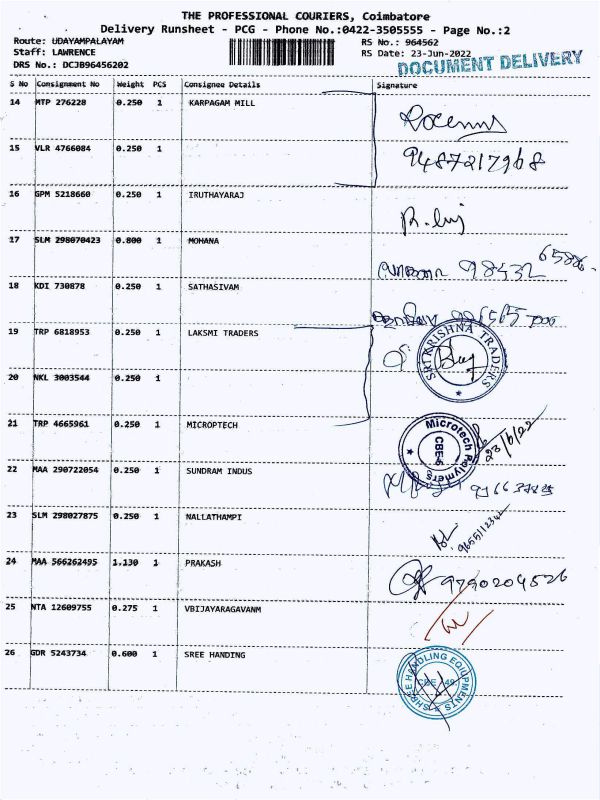 THE PROFESSIONAL COURIERS, Coimbatore
Delivery Runsheet - PCG - Phone No.:0422-3505555 - Page No.:2
Route: UDAYAMPALAYAM RS No.: 964562
Staff: LAWRENCE RS Date: 23-Jun-2022
DRS No.: DCJB96456202 DOCUMENT DELIVERY
S No Consignment No Weight PCS Consignee Details Signature
14 MTP 276228 0.250 1 KARPAGAM MILL
15 VLR 4766084 0.250 1 9487217968
16 GPM 5218660 0.250 1 IRUTHAYARAJ
17 SLM 298070423 0.800 1 MOHANA
98432 65886
18 KDI 730878 0.250 1 SATHASIVAM
19 TRP 6818953 0.250 1 LAKSMI TRADERS
SRI KRISHNA TRADERS
20 NKL 3003544 0.250 1
21 TRP 4665961 0.250 1 MICROPTECH
Microtech Polymers
CBE-6
23/6/22
22 MAA 290722054 0.250 1 SUNDRAM INDUS
23 SLM 298027875 0.250 1 NALLATHAMPI
9655112342
24 MAA 566262495 1.130 1 PRAKASH
9790204526
25 NTA 12609755 0.275 1 VBIJAYARAGAVANM
26 GDR 5243734 0.600 1 SREE HANDING
SHREE HANDLING EQUIPMENTS